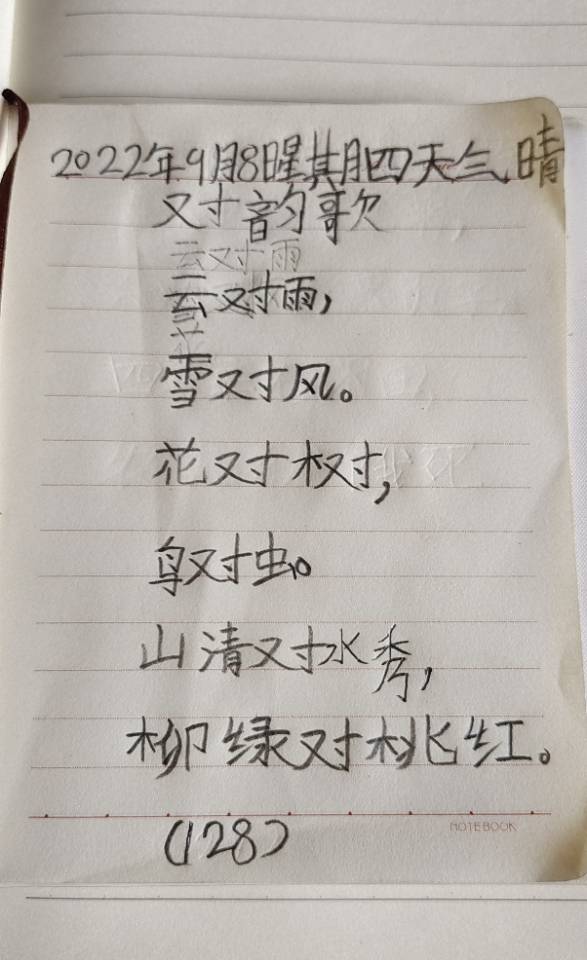 2022年9月8日星期四天气晴
对韵歌
云对雨
云对雨,
雪对风。
花对树,
鸟对虫。
山清对水秀,
柳绿对桃红。
NOTEBOOK
(128)